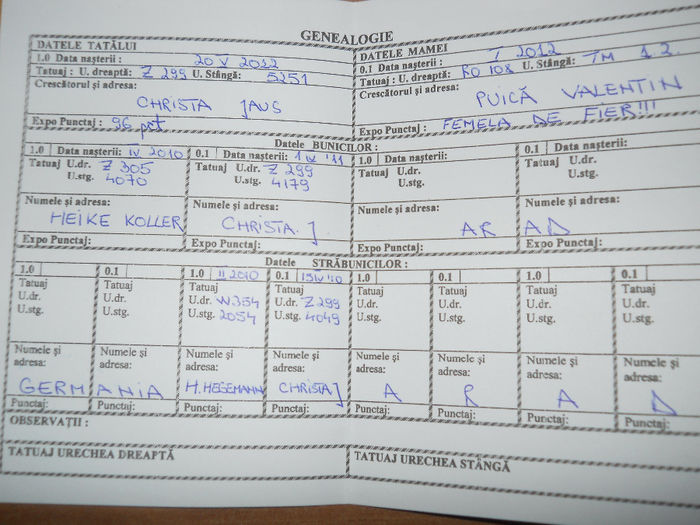 GENEALOGIE
DATELE TATĂLUI
1.0 Data nașterii : 20 V 2012
Tatuaj : U. dreaptă: Z 299 U. Stângă: 5251
Crescătorul și adresa:
CHRISTA JAUS
Expo Punctaj : 96 pct
DATELE MAMEI
0.1 Data nașterii : I 2012
Tatuaj : U. dreaptă: RO 108 U. Stângă: TM 1 2.
Crescătorul și adresa:
PUICĂ VALENTIN
Expo Punctaj : FEMELA DE FIER!!!
Datele BUNICILOR :
1.0 Data nașterii: IV 2010
Tatuaj U.dr. Z 305
U.stg. 4070
Numele și adresa:
HEIKE KOLLER
Expo Punctaj:
0.1 Data nașterii: 1 IX '11
Tatuaj U.dr. Z 299
U.stg. 4179
Numele și adresa:
CHRISTA. J
Expo Punctaj:
1.0 Data nașterii:
Tatuaj U.dr.
U.stg.
Numele și adresa:
AR
Expo Punctaj:
0.1 Data nașterii:
Tatuaj U.dr.
U.stg.
Numele și adresa:
AD
Expo Punctaj:
Datele STRĂBUNICILOR :
1.0
Tatuaj
U.dr.
U.stg.
Numele și
adresa:
GERM
Punctaj:
0.1
Tatuaj
U.dr.
U.stg.
Numele și
adresa:
ANIA
Punctaj:
1.0 II 2010
Tatuaj
U.dr. W354
U.stg. 2054
Numele și
adresa:
H. HEGEMANN
Punctaj:
0.1 15 IV '10
Tatuaj
U.dr. Z 299
U.stg. 4049
Numele și
adresa:
CHRISTA J
Punctaj:
1.0
Tatuaj
U.dr.
U.stg.
Numele și
adresa:
A
Punctaj:
0.1
Tatuaj
U.dr.
U.stg.
Numele și
adresa:
R
Punctaj:
1.0
Tatuaj
U.dr.
U.stg.
Numele și
adresa:
A
Punctaj:
0.1
Tatuaj
U.dr.
U.stg.
Numele și
adresa:
D
Punctaj:
OBSERVAȚII :
TATUAJ URECHEA DREAPTĂ
TATUAJ URECHEA STÂNGĂ